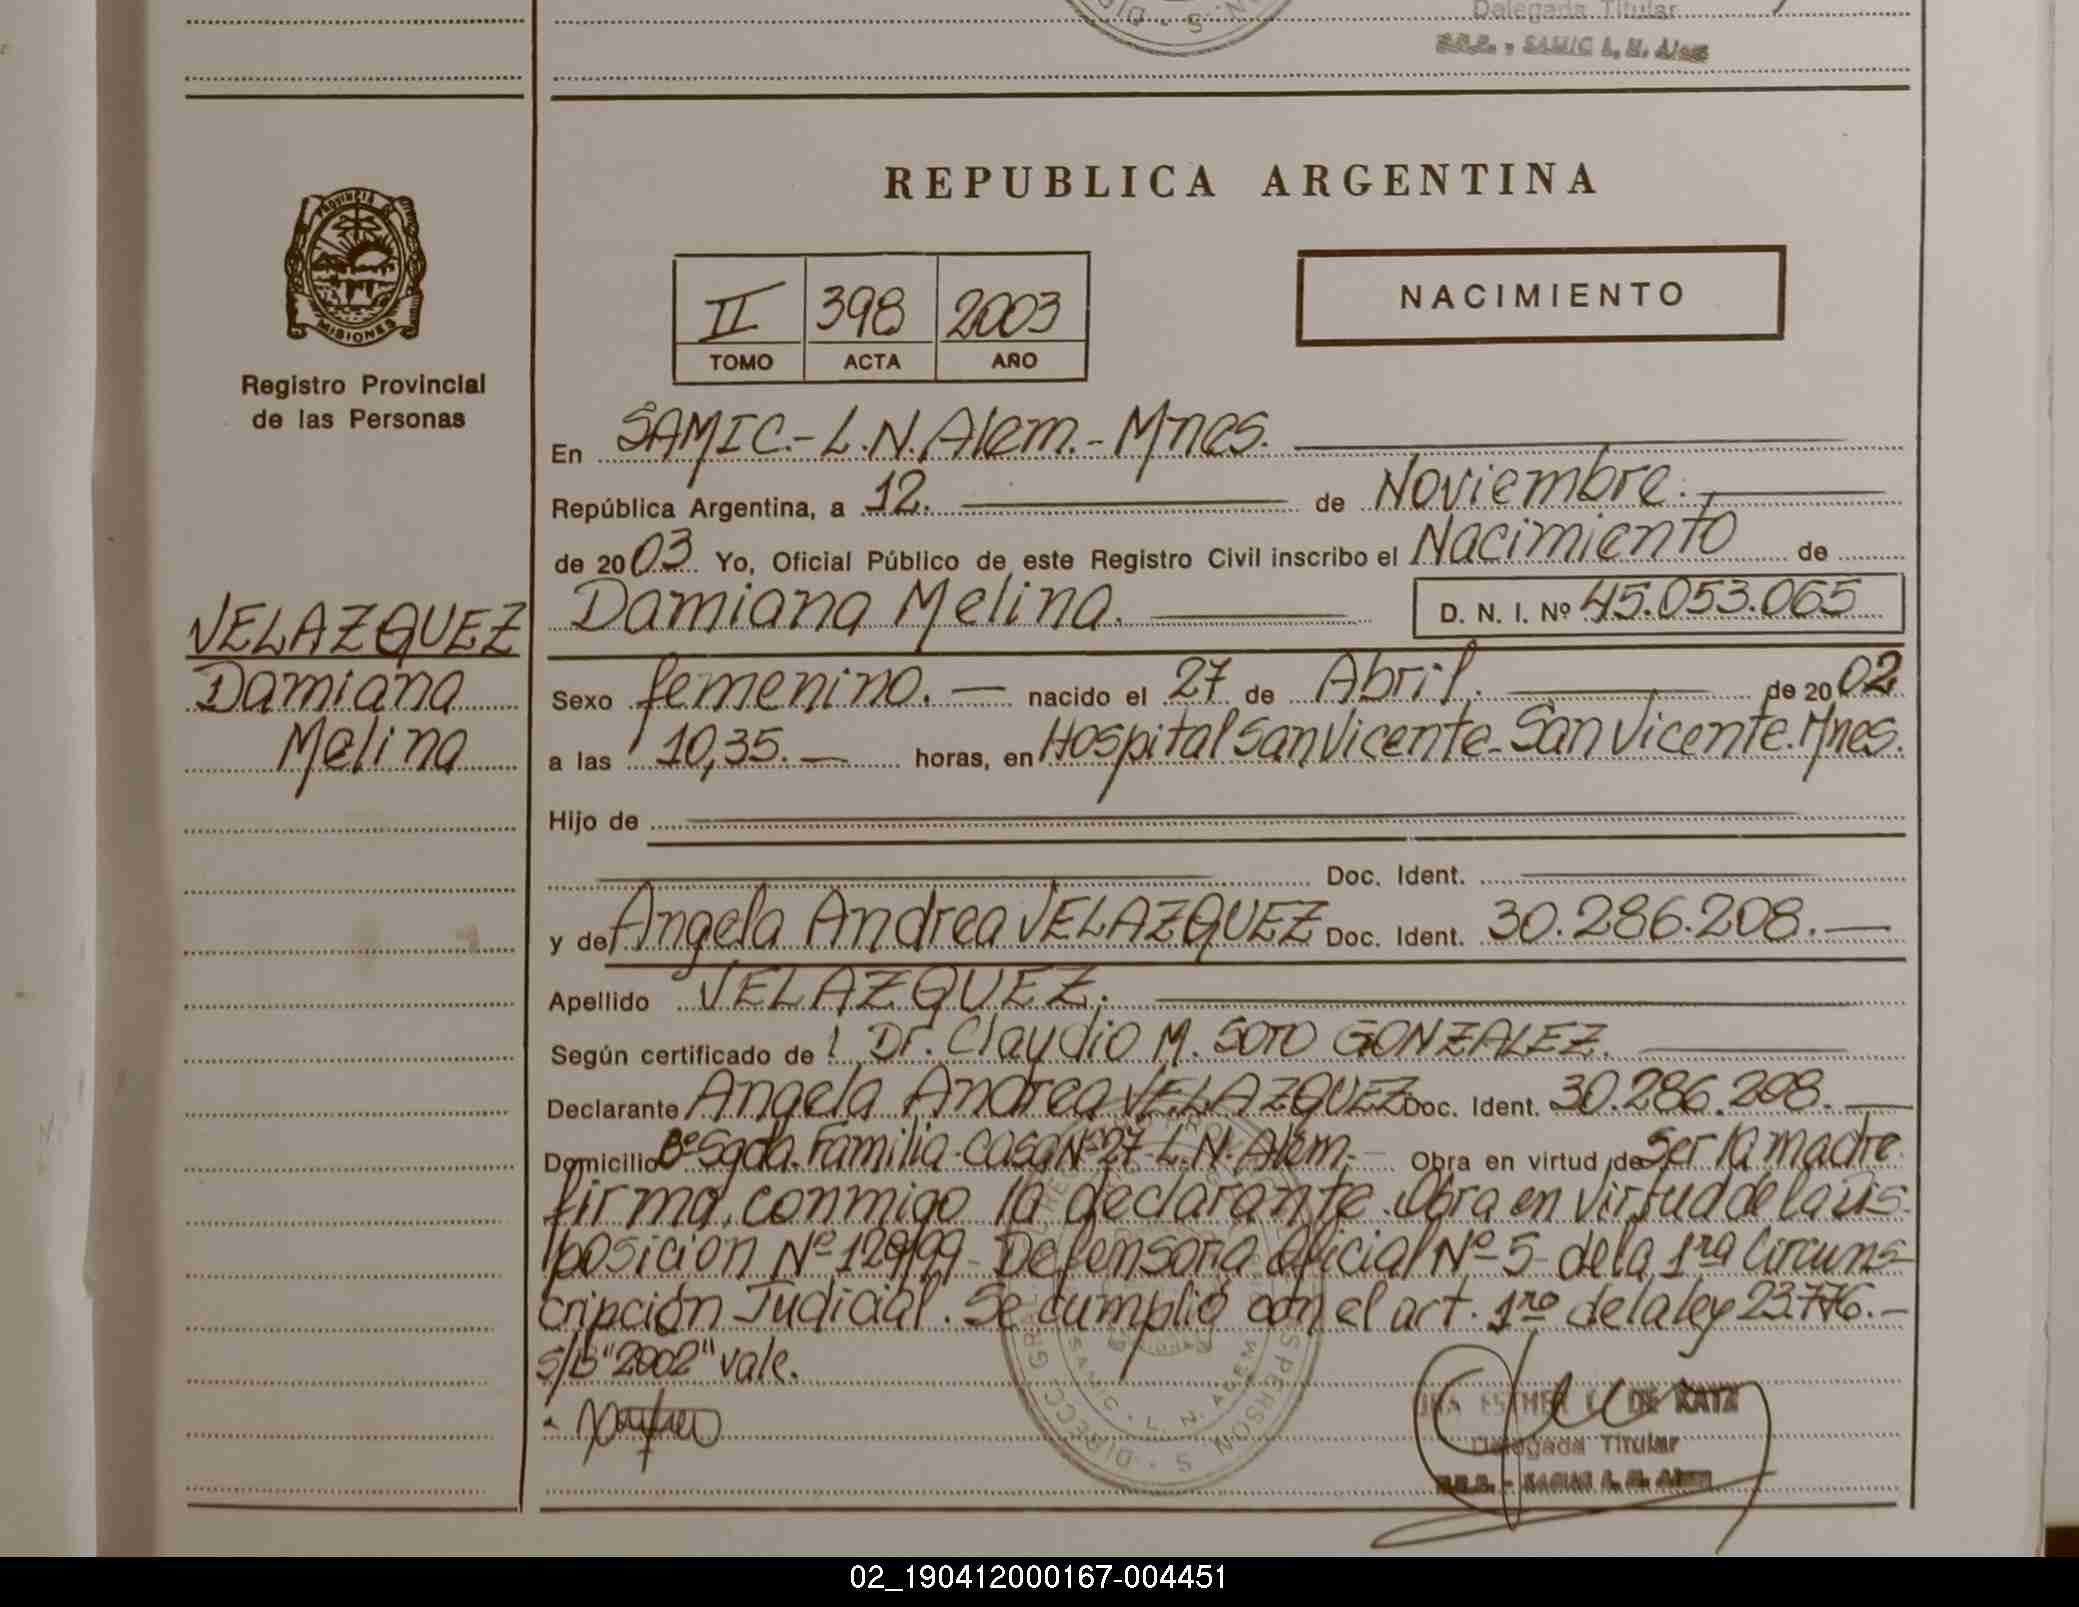 Delegada Titular
REPUBLICA ARGENTINA
PROVINCIA DE
MISIONES
Registro Provincial
de las Personas
II 398 2003
TOMO ACTA AÑO
NACIMIENTO
En SAMIC.- L.N.Alem.- Mnes.
República Argentina, a 12. de Noviembre.
de 2003 Yo, Oficial Público de este Registro Civil inscribo el Nacimiento de
VELAZQUEZ
Damiana
Melina
Damiana Melina. D. N. I. Nº 45.053.065
Sexo femenino. — nacido el 27 de Abril. de 2002
a las 10,35. — horas, en Hospital San Vicente - San Vicente. Mnes.
Hijo de
Doc. Ident.
y de Angela Andrea VELAZQUEZ Doc. Ident. 30.286.208. —
Apellido VELAZQUEZ.
Según certificado de l Dr. Claudio M. SOTO GONZALEZ.
Declarante Angela Andrea VELAZQUEZ Doc. Ident. 30.286.208. —
Domicilio Bº Sgda. Familia - Casa Nº 27 - L.N. Alem.- Obra en virtud de Ser la madre
firma, conmigo la declarante. Obra en virtud de la Dis-
posición Nº 129/99 - Defensoria Oficial Nº 5 - de la 1ra Circuns-
cripción Judicial. Se cumplió con el art. 1ro de la ley 23.776. -
S/B "2002" vale.
DE RATZ
Delegada Titular
02_190412000167-004451